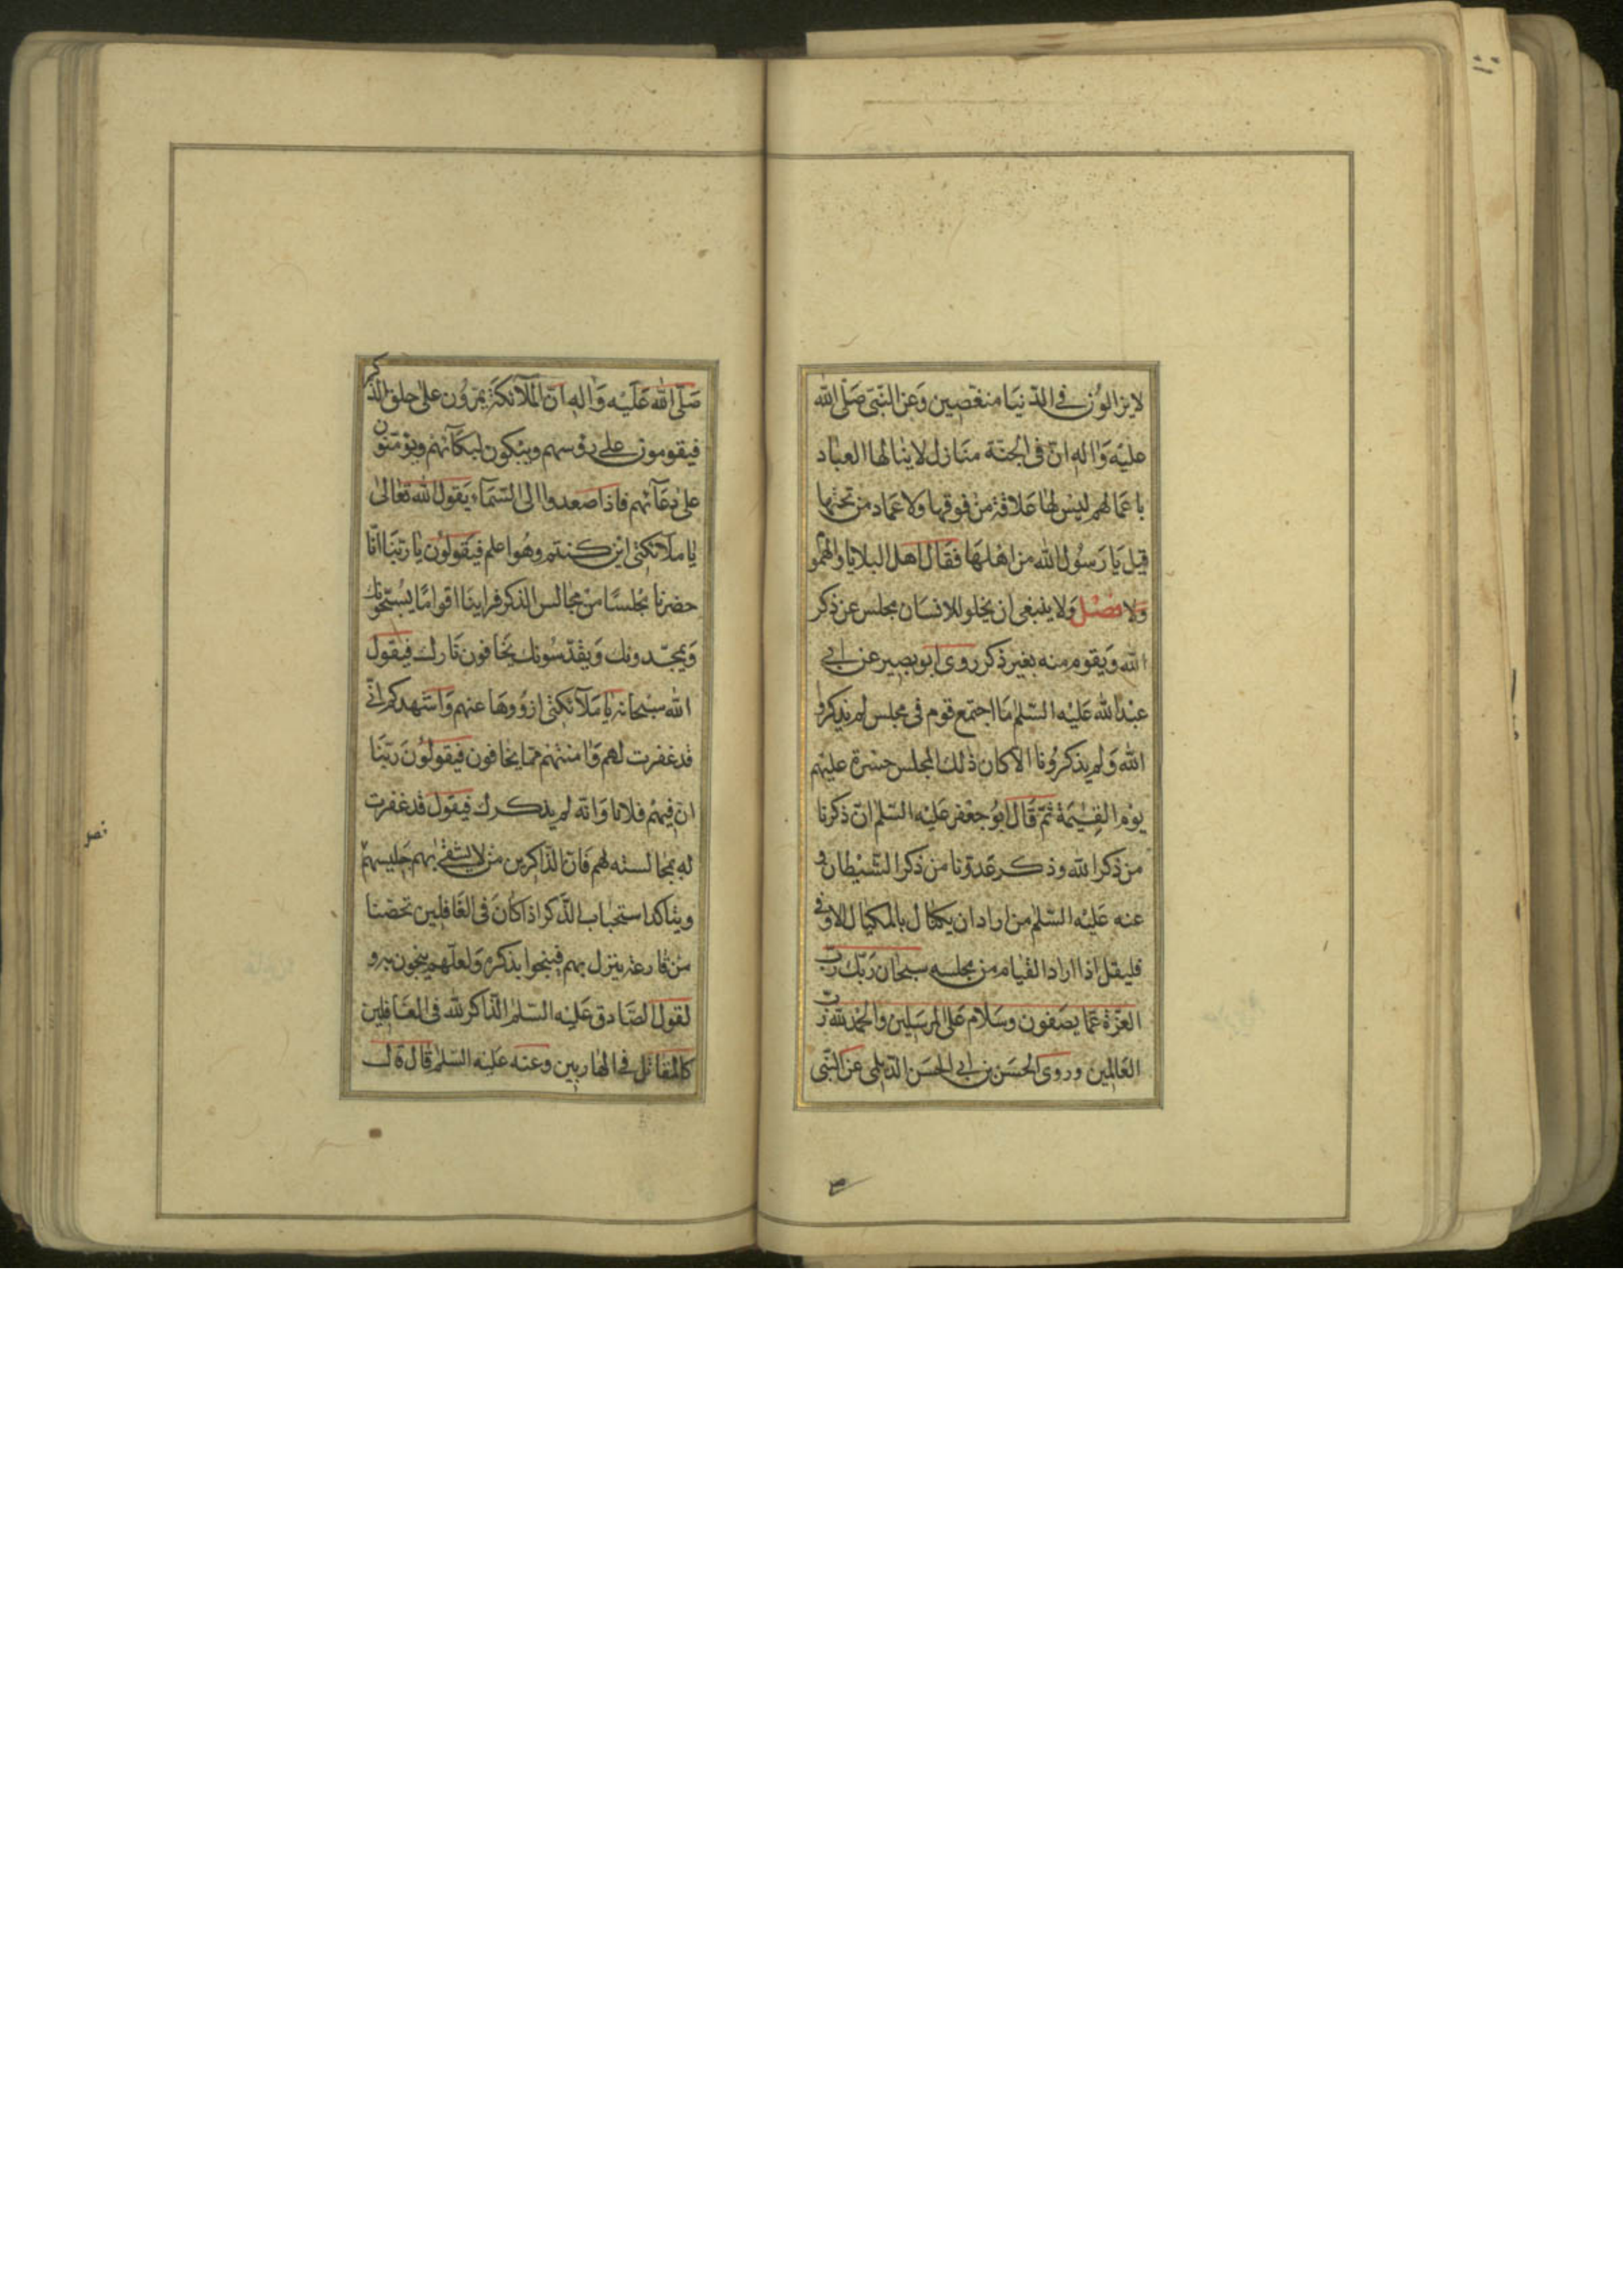 لا يزالون في الدّنيا منغصين وعن النّبي صلّى الله
عليه واله انّ في الجنّة منازل لا ينالها العباد
باعمالهم ليس لها علاقة من فوقها ولا عماد من تحتها
قيل يا رسول الله من اهلها فقال اهل البلايا والهموم
فصل ولا ينبغي ان يخلو للانسان مجلس عن ذكر
الله ويقوم منه بغير ذكر روى ابو بصير عن ابي
عبد الله عليه السّلم ما اجتمع قوم في مجلس لم يذكروا
الله ولم يذكرونا الا كان ذلك المجلس حسرة عليهم
يوم القيمة ثمّ قال ابو جعفر عليه السّلم انّ ذكرنا
من ذكر الله وذكر عدوّنا من ذكر الشّيطان و
عنه عليه السّلم من اراد ان يكتال بالمكيال الاوفى
فليقل اذا اراد القيام من مجلسه سبحان ربّك ربّ
العزّة عمّا يصفون وسلام على المرسلين والحمد لله ربّ
العالمين وروى الحسن بن ابي الحسن الدّيلمي عن النّبي
صلّى الله عليه واله انّ الملآئكة يمرّون على حلق الذّكر
فيقومون على رؤسهم ويبكون لبكآئهم ويؤمّنون
على دعآئهم فاذا صعدوا الى السّمآء يقول الله تعالى
يا ملآئكتي اين كنتم وهو اعلم فيقولون يا ربّنا انّا
حضرنا مجلسا من مجالس الذكر فراينا اقواما يسبّحونك
ويمجّدونك ويقدّسونك يخافون نارك فيقول
الله سبحانه يا ملآئكتي ازووها عنهم واشهدكم انّي
قد غفرت لهم وامنتهم ممّا يخافون فيقولون ربّنا
انّ فيهم فلانا وانّه لم يذكرك فيقول قد غفرت
له بمجالسته لهم فانّ الذّاكرين من لا يشقى بهم جليسهم
ويتاكد استحباب الذّكر اذا كان في الغافلين تحصّنا
من قارعة ينزل بهم فينجوا بذكره ولعلّهم ينجون به و
لقول الصّادق عليه السّلم الذّاكر لله في الغافلين
كالمقاتل في الهاربين وعنه عليه السّلم قال قال